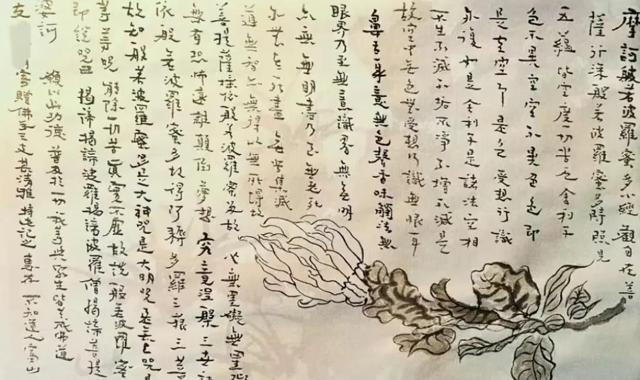 摩訶般若波羅蜜多心經 觀自在菩
薩行深般若波羅蜜多時照見
五蘊皆空度一切苦厄舍利子
色不異空空不異色色即
是空空即是色受想行識
亦復如是舍利子是諸法空相
不生不滅不垢不淨不增不減是
故空中無色無受想行識無眼耳
鼻舌身意無色聲香味觸法無
眼界乃至無意識界無無明
亦無無明盡乃至無老死
亦無老死盡無苦集滅
道無智亦無得以無所得故
菩提薩埵依般若波羅蜜多故 心無罣礙無罣礙
無有恐怖遠離顛倒夢想 究竟涅槃三世
依般若波羅蜜多故得阿耨多羅三藐三菩
故知般若波羅蜜多是大神咒是大明咒是無上咒是
等等咒能除一切苦真實不虛故說般若波羅蜜
即說咒曰揭諦揭諦波羅揭諦波羅僧揭諦菩提
娑訶 願以此功德普及於一切我等與眾生皆共成佛道
友 寄贈佛手